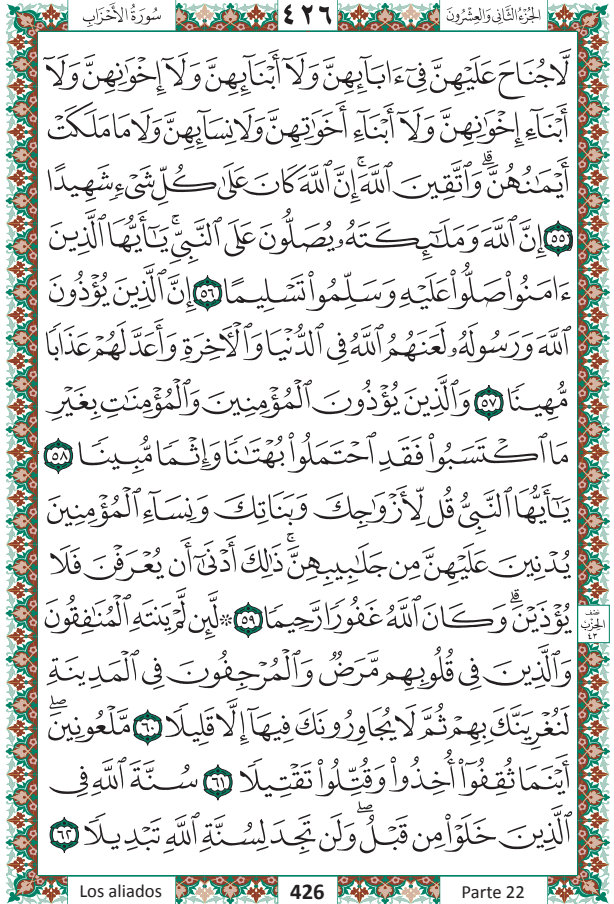 الجُزْءُ الثَّانِي وَالعِشْرُونَ ٤٢٦ سُورَةُ الأَحْزَابِ
لَّا جُنَاحَ عَلَيْهِنَّ فِيٓ ءَابَآئِهِنَّ وَلَآ أَبْنَآئِهِنَّ وَلَآ إِخْوَٰنِهِنَّ وَلَآ
أَبْنَآءِ إِخْوَٰنِهِنَّ وَلَآ أَبْنَآءِ أَخَوَٰتِهِنَّ وَلَا نِسَآئِهِنَّ وَلَا مَا مَلَكَتْ
أَيْمَٰنُهُنَّۗ وَٱتَّقِينَ ٱللَّهَۚ إِنَّ ٱللَّهَ كَانَ عَلَىٰ كُلِّ شَىْءٍ شَهِيدًا
٥٥ إِنَّ ٱللَّهَ وَمَلَٰٓئِكَتَهُۥ يُصَلُّونَ عَلَى ٱلنَّبِيِّۚ يَٰٓأَيُّهَا ٱلَّذِينَ
ءَامَنُوا۟ صَلُّوا۟ عَلَيْهِ وَسَلِّمُوا۟ تَسْلِيمًا ٥٦ إِنَّ ٱلَّذِينَ يُؤْذُونَ
ٱللَّهَ وَرَسُولَهُۥ لَعَنَهُمُ ٱللَّهُ فِي ٱلدُّنْيَا وَٱلْءَاخِرَةِ وَأَعَدَّ لَهُمْ عَذَابًا
مُّهِينًا ٥٧ وَٱلَّذِينَ يُؤْذُونَ ٱلْمُؤْمِنِينَ وَٱلْمُؤْمِنَٰتِ بِغَيْرِ
مَا ٱكْتَسَبُوا۟ فَقَدِ ٱحْتَمَلُوا۟ بُهْتَٰنًا وَإِثْمًا مُّبِينًا ٥٨
يَٰٓأَيُّهَا ٱلنَّبِيُّ قُل لِّأَزْوَٰجِكَ وَبَنَاتِكَ وَنِسَآءِ ٱلْمُؤْمِنِينَ
يُدْنِينَ عَلَيْهِنَّ مِن جَلَٰبِيبِهِنَّۚ ذَٰلِكَ أَدْنَىٰٓ أَن يُعْرَفْنَ فَلَا
يُؤْذَيْنَۗ وَكَانَ ٱللَّهُ غَفُورًا رَّحِيمًا ٥٩ ۞ لَّئِن لَّمْ يَنتَهِ ٱلْمُنَٰفِقُونَ
نصف
الحزب
٤٣
وَٱلَّذِينَ فِي قُلُوبِهِم مَّرَضٌ وَٱلْمُرْجِفُونَ فِي ٱلْمَدِينَةِ
لَنُغْرِيَنَّكَ بِهِمْ ثُمَّ لَا يُجَاوِرُونَكَ فِيهَآ إِلَّا قَلِيلًا ٦٠ مَّلْعُونِينَۖ
أَيْنَمَا ثُقِفُوٓا۟ أُخِذُوا۟ وَقُتِّلُوا۟ تَقْتِيلًا ٦١ سُنَّةَ ٱللَّهِ فِي
ٱلَّذِينَ خَلَوْا۟ مِن قَبْلُۖ وَلَن تَجِدَ لِسُنَّةِ ٱللَّهِ تَبْدِيلًا ٦٢
Los aliados 426 Parte 22